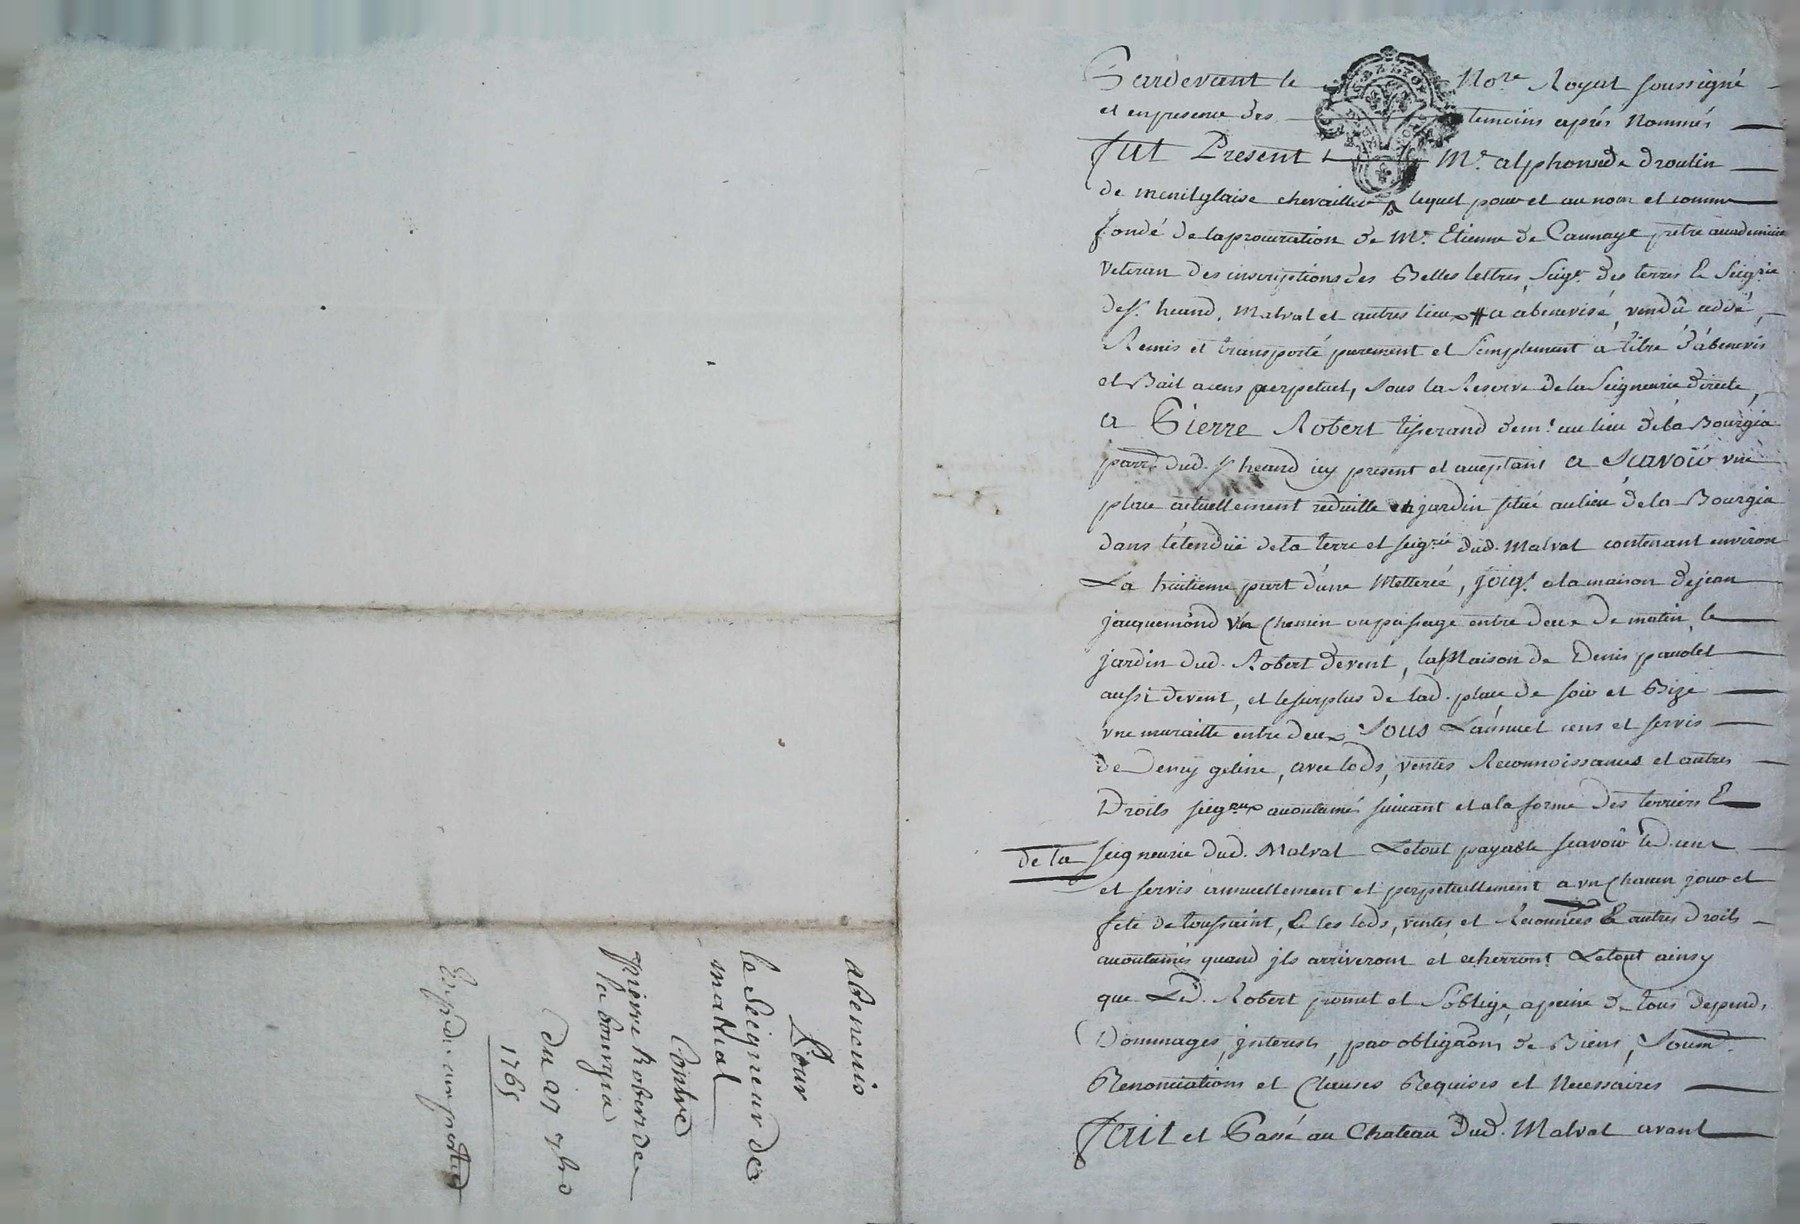 Pardevant le No.re Royal soussigné
et en presence des temoins aprés Nommés
fut Present M.r alphonse de droulin
de menilglaise chevaillier lequel pour et au nom et comme
fondé de la procuration de M.r Etienne de Cannaye prétre academicien
veteran des inscriptions des Belles lettres, Seig.r des terres & Seig.rie
de S.t heand, Malval et autres lieux a abenevisé, vendû cedé,
Remis et transporté purement et Simplement a titre d'ábenevis
et Bail a cens perpetuel, sous la Reserve de la Seigneurie directe,
a Pierre Robert tisserand dem.t au lieu de la Bourgia
parr.e dud. S.t heand icy present et acceptant a Scavoir une
place actuellement reduitte en jardin situé au lieu de la Bourgia
dans l'étendüe de la terre et seig.rie dud. Malval contenant environ
La huitieme part d'une Metterée, joig.t a la maison de jean
jacquemond Un Chemin ou passage entre deux de matin, le
jardin dud. Robert de vent, la Maison de Denis paulet
aussi de vent, et le surplus de lad. place de soir et Bize
une muraille entre deux Sous L'annuel cens et servis
de Demy geline, avec lods, ventes Reconnoissances et autres
Droits seig.aux accoutumé suivant et a la forme des terriers &
de la seigneurie dud. Malval Le tout payable scavoir led. cens
et servis annuellement et perpetuellement a un Chacun jour et
fete de toussaint, & les lods, ventes et Reconnées & autres droits
accoutumés quand jls arriveront et echerront Le tout ainsy
que Led. Robert promet et S'oblige, a peine de tous depend,
Dommages, jnterests, par obligaõns de Biens, Soum.
Renonciations et Clauses Requises et Necessaires
fait et Passé au Chateau dud. Malval avant
abenevis
Pour
le Seigneur de
malval
Contre
pierre Robert de
la bourgia
du 27 7bre
1765